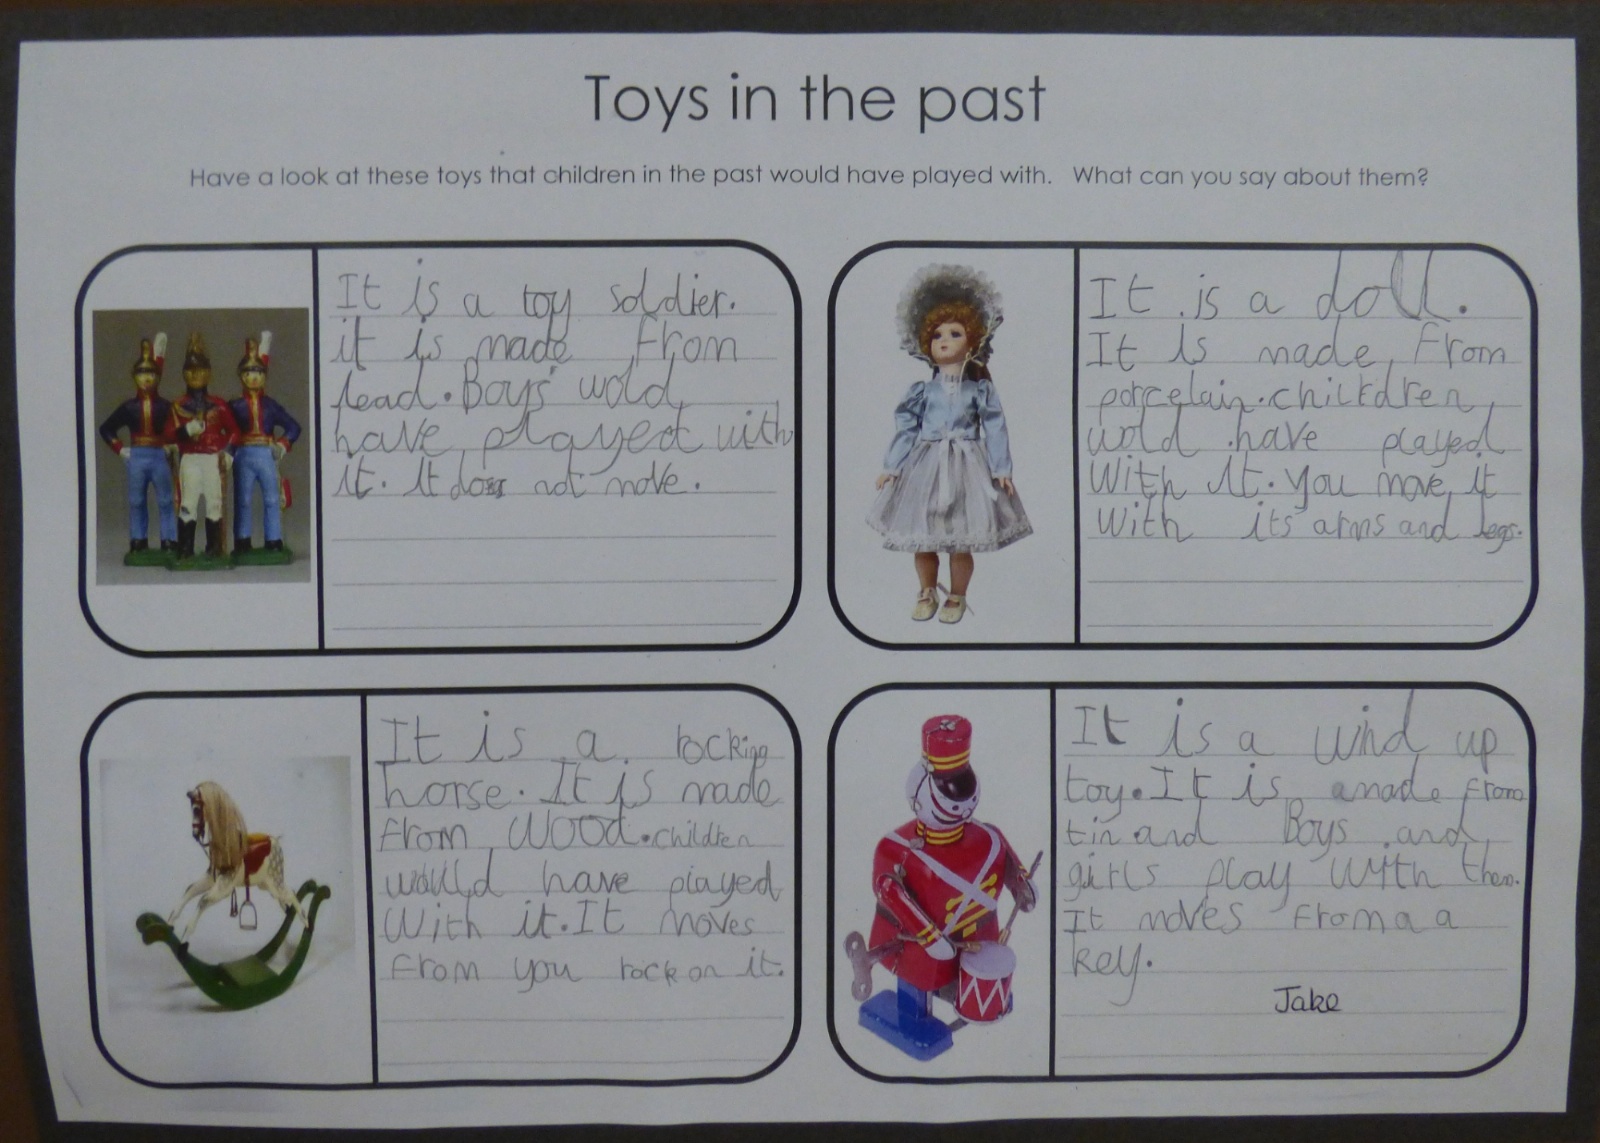 Toys in the past
Have a look at these toys that children in the past would have played with. What can you say about them?
It is a toy soldier.
it is made from
lead. Boys wold
have played with
it. It does not move.
It is a doll.
It is made from
porcelain. chilrdren
wold have played
with it. You move it
with its arms and legs.
It is a rocking
horse. It is made
from wood. children
would have played
with it. It moves
from you rock on it.
It is a wind up
toy. It is made from
tin and Boys and
girls play with them.
It moves from a a
key.
Jake